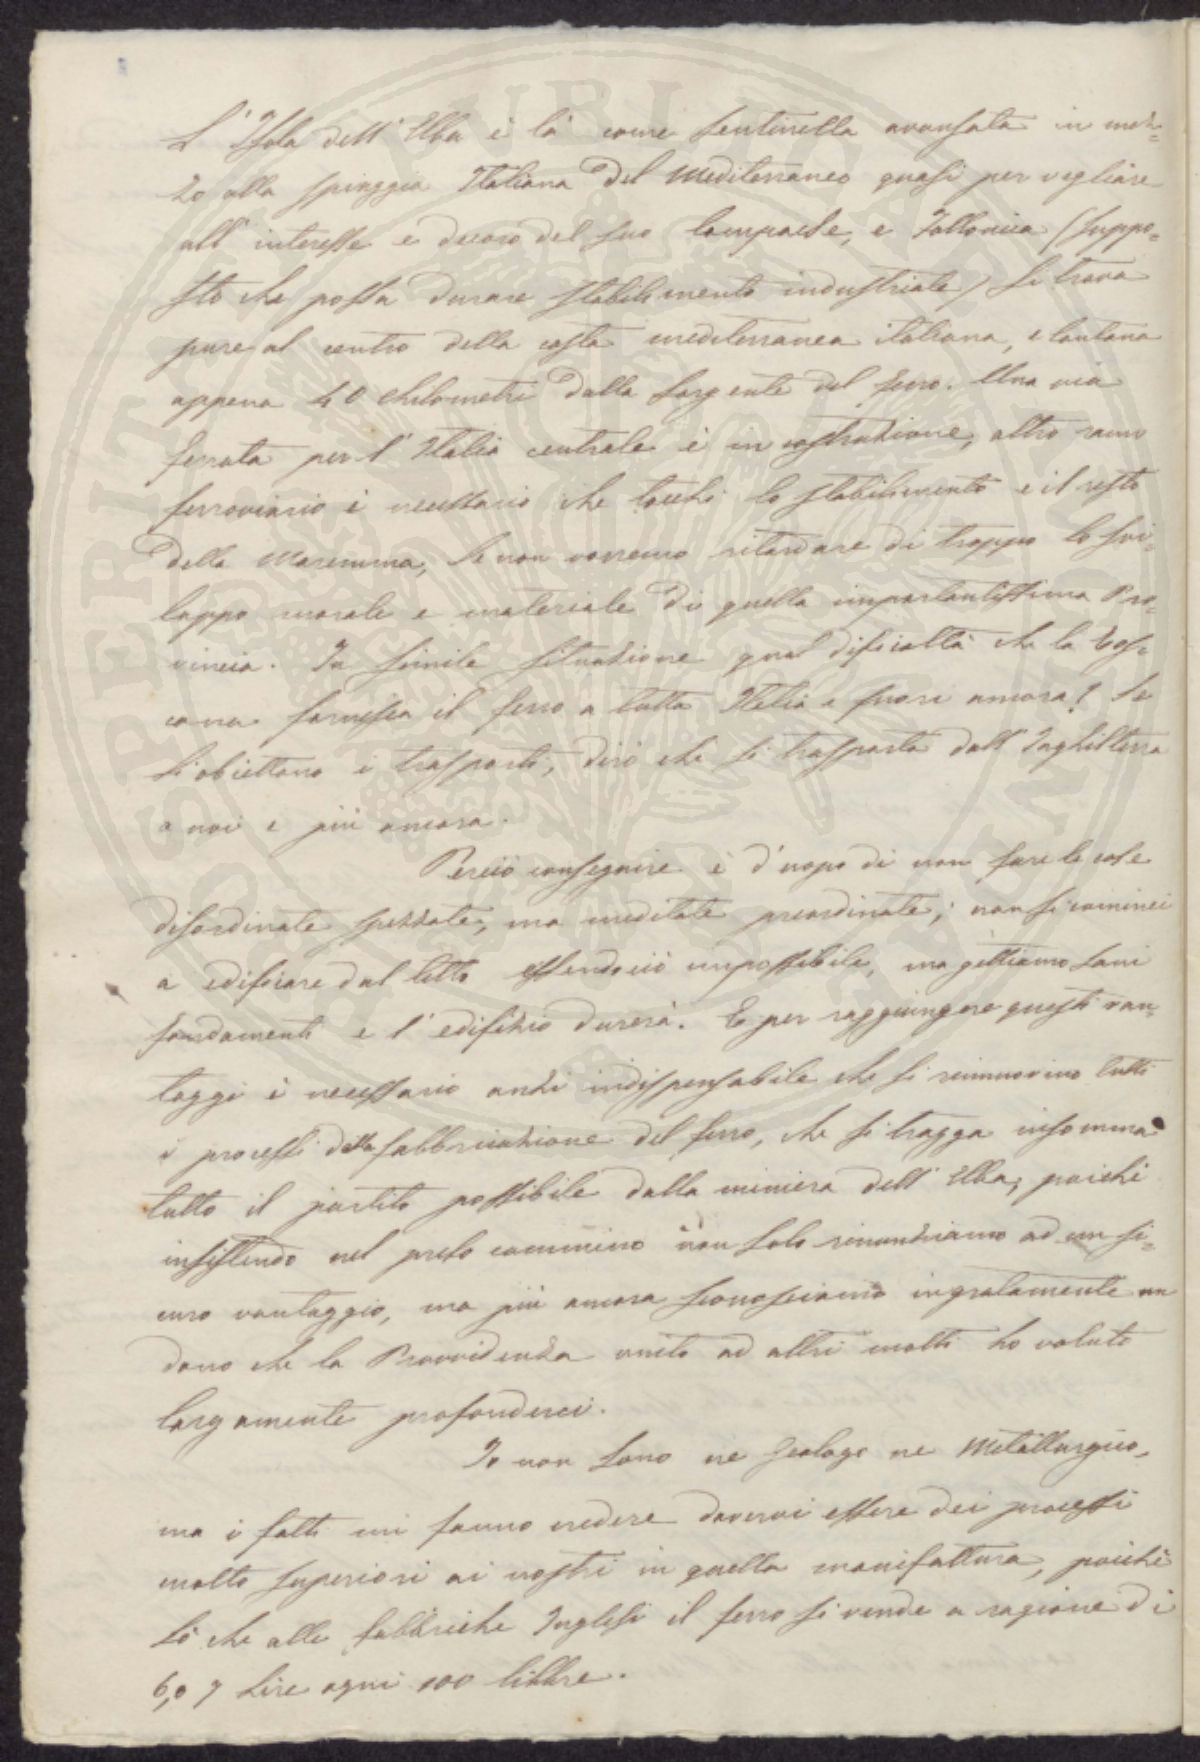 L'Isola dell'Elba è là come sentinella avansata in mez=
zo alla spiaggia Italiana del Mediterraneo quasi per vegliare
all'interesse e decoro del suo compaese, e Follonica (suppo=
sto che possa durare stabilimento industriale) si trova
pure al centro della costa mediterranea italiana, e lontana
appena 40 Chilometri dalla sorgente del ferro. Una via
ferrata per l'Italia centrale è in costruzione, altro ramo
ferroviario è necessario che tocchi lo stabilimento e il resto
della Maremma, se non vorremo ritardare di troppo lo svi=
luppo morale e materiale di quella importantissima Pro=
vincia. In simile situazione qual dificaltà che la Tos=
cana fornisca il ferro a tutta Italia e fuori ancora? Se
si obiettano i trasporti, dirò che si trasporta dall'Inghilterra
a noi e più ancora.
Perciò conseguire è d'uopo di non fare le cose
disordinate spezzate, ma meditate preordinate; non si cominci
a edificare dal tetto essendo ciò impossibile, ma gettiamo sani
fondamenti e l'edifizio durerà. E per raggiungere questi van=
taggi è necessario anzi indispensabile che si rinnuovino tutti
i processi della fabbricazione del ferro, che si tragga insomma
tutto il partito possibile dalla miniera dell'Elba, poichè
insistendo nel preso cammino non solo rinunziamo ad un si=
curo vantaggio, ma più ancora sconosciamo ingratamente un
dono che la Provvidenza unito ad altri molti ha voluto
largamente profonderci.
Io non sono ne Geologo ne Metallurgico,
ma i fatti mi fanno credere dovervi essere dei processi
molto superiori ai nostri in quella manifattura, poichè
sò che alle fabbriche Inglesi il ferro si vende a ragione di
6, o 7 Lire ogni 100 libbre.
PROSPERITATI PUBLICAE AUGENDAE